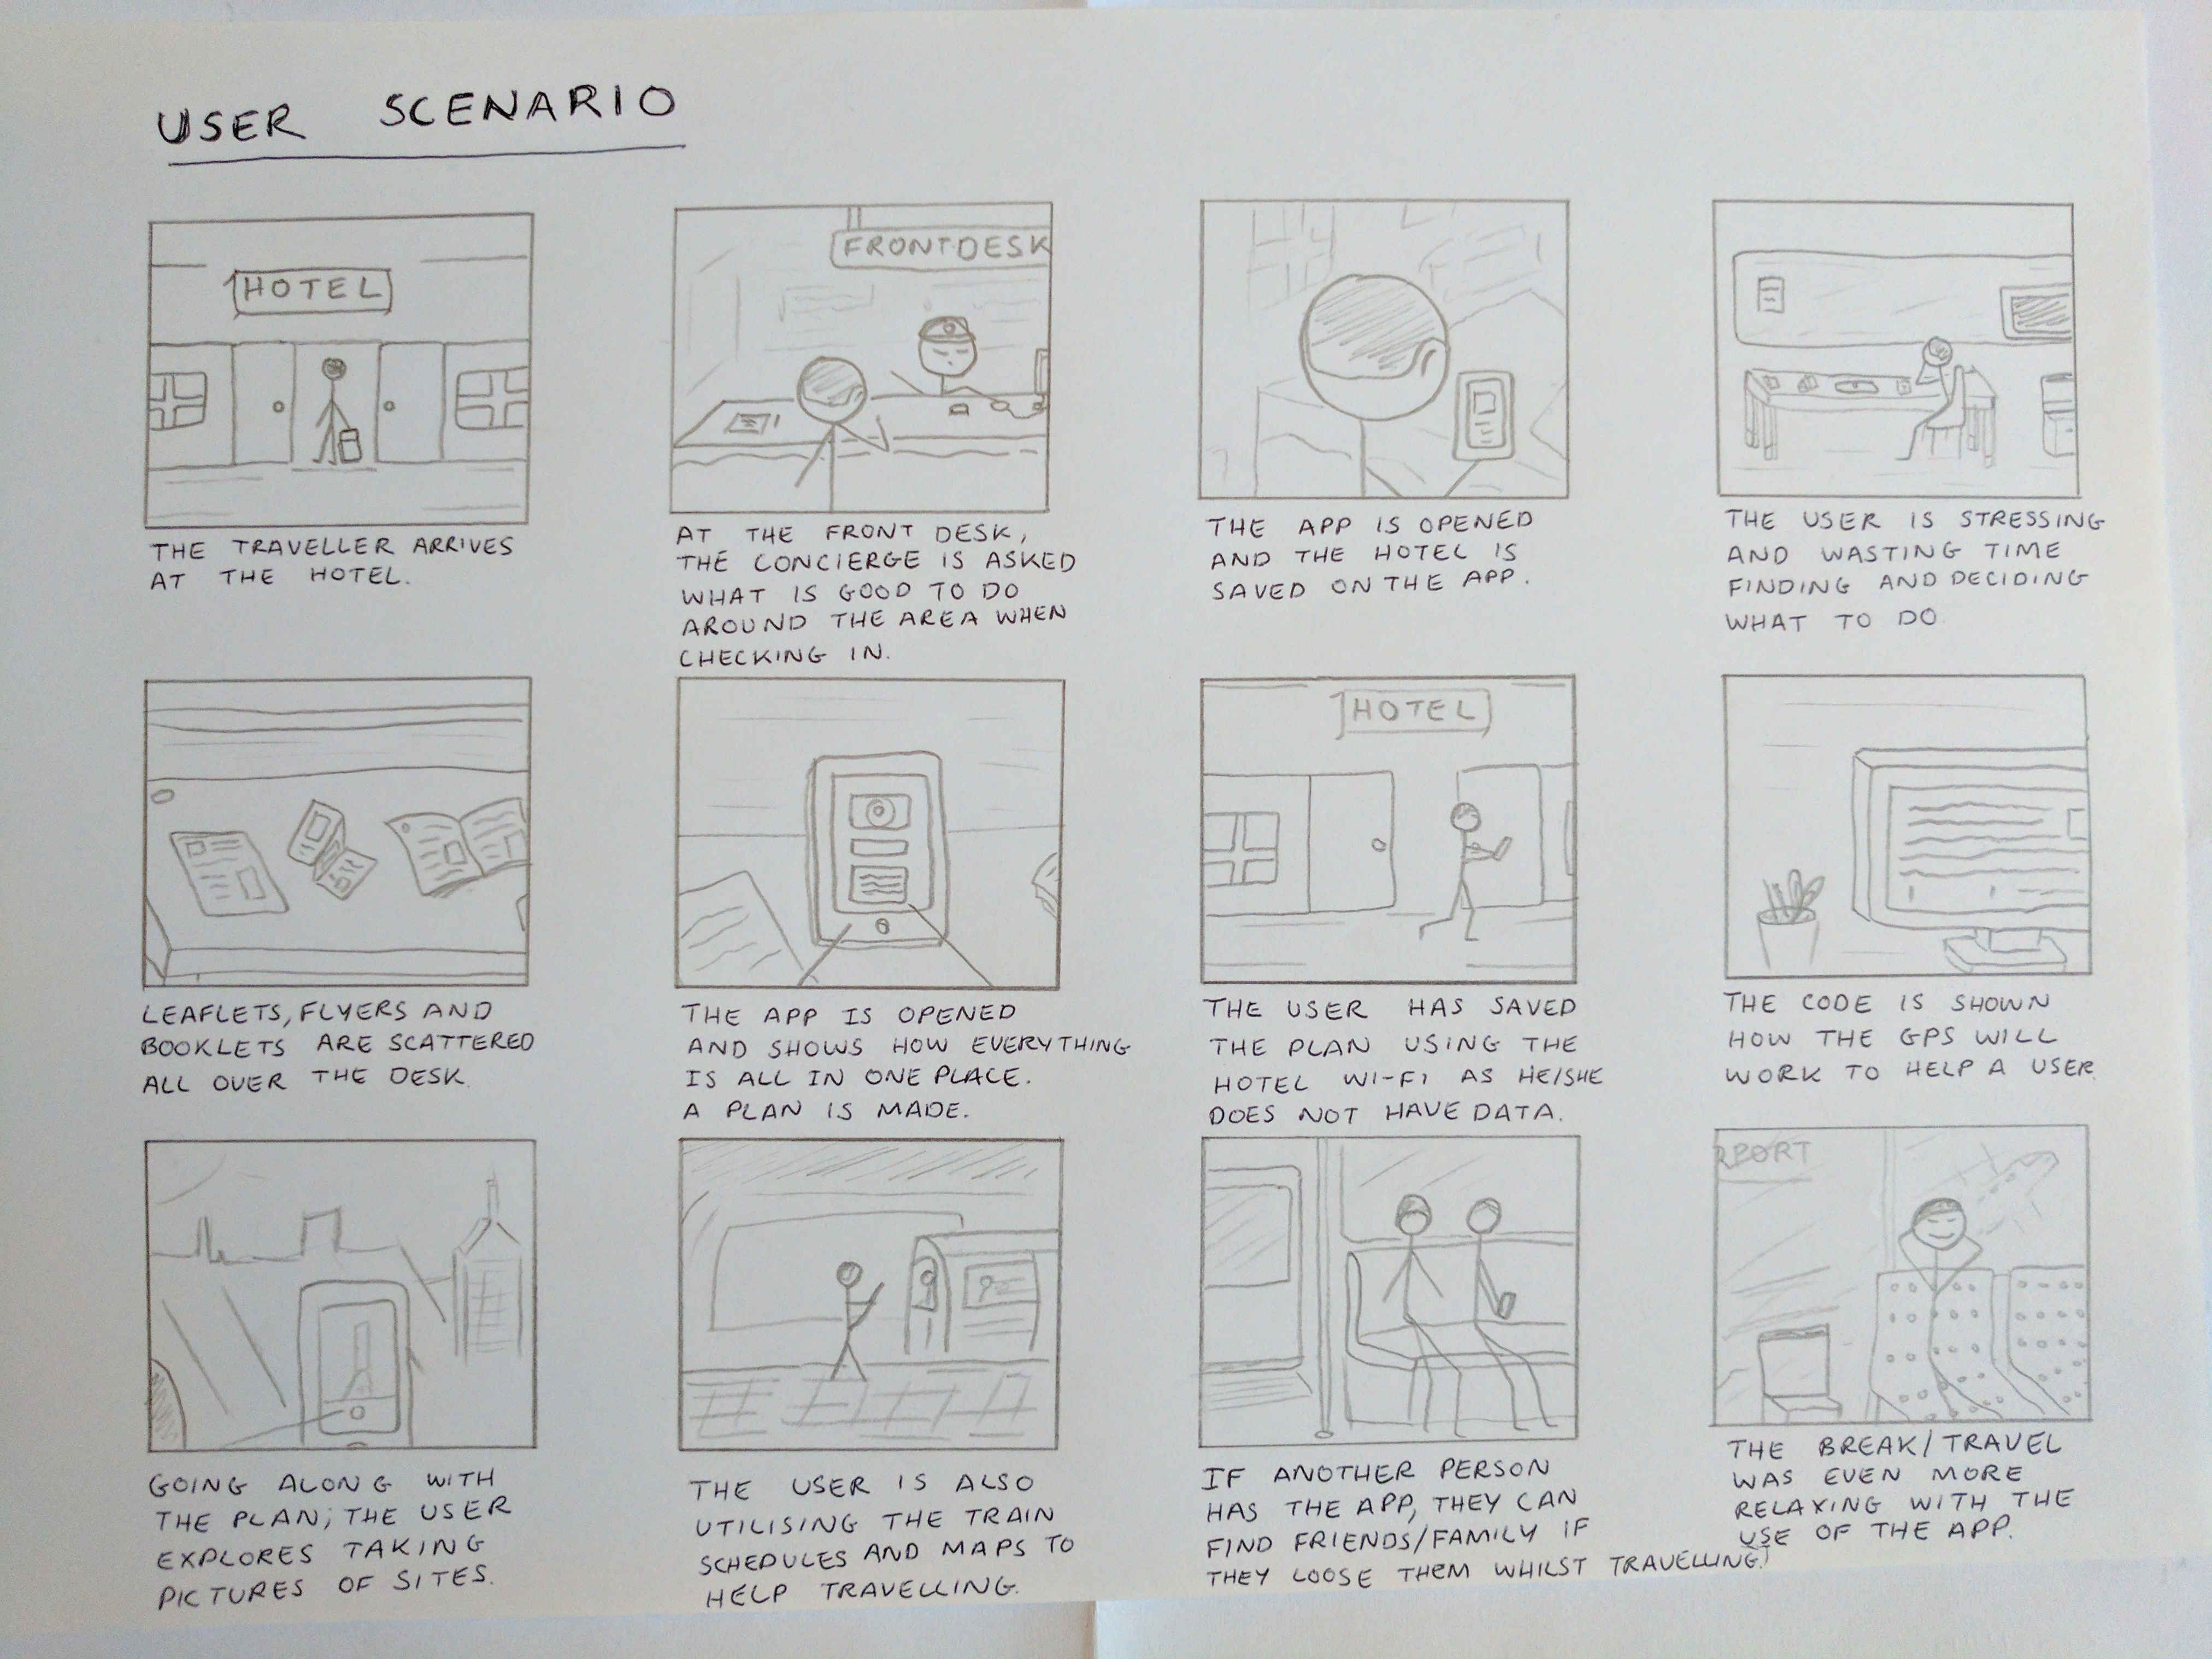 USER SCENARIO
HOTEL
THE TRAVELLER ARRIVES
AT THE HOTEL.
FRONT DESK
AT THE FRONT DESK,
THE CONCIERGE IS ASKED
WHAT IS GOOD TO DO
AROUND THE AREA WHEN
CHECKING IN.
THE APP IS OPENED
AND THE HOTEL IS
SAVED ON THE APP.
THE USER IS STRESSING
AND WASTING TIME
FINDING AND DECIDING
WHAT TO DO.
LEAFLETS, FLYERS AND
BOOKLETS ARE SCATTERED
ALL OVER THE DESK.
THE APP IS OPENED
AND SHOWS HOW EVERYTHING
IS ALL IN ONE PLACE.
A PLAN IS MADE.
HOTEL
THE USER HAS SAVED
THE PLAN USING THE
HOTEL WI-FI AS HE/SHE
DOES NOT HAVE DATA.
THE CODE IS SHOWN
HOW THE GPS WILL
WORK TO HELP A USER.
GOING ALONG WITH
THE PLAN; THE USER
EXPLORES TAKING
PICTURES OF SITES.
THE USER IS ALSO
UTILISING THE TRAIN
SCHEDULES AND MAPS TO
HELP TRAVELLING.
IF ANOTHER PERSON
HAS THE APP, THEY CAN
FIND FRIENDS/FAMILY IF
THEY LOOSE THEM WHILST TRAVELLING.
RPORT
THE BREAK/TRAVEL
WAS EVEN MORE
RELAXING WITH THE
USE OF THE APP.